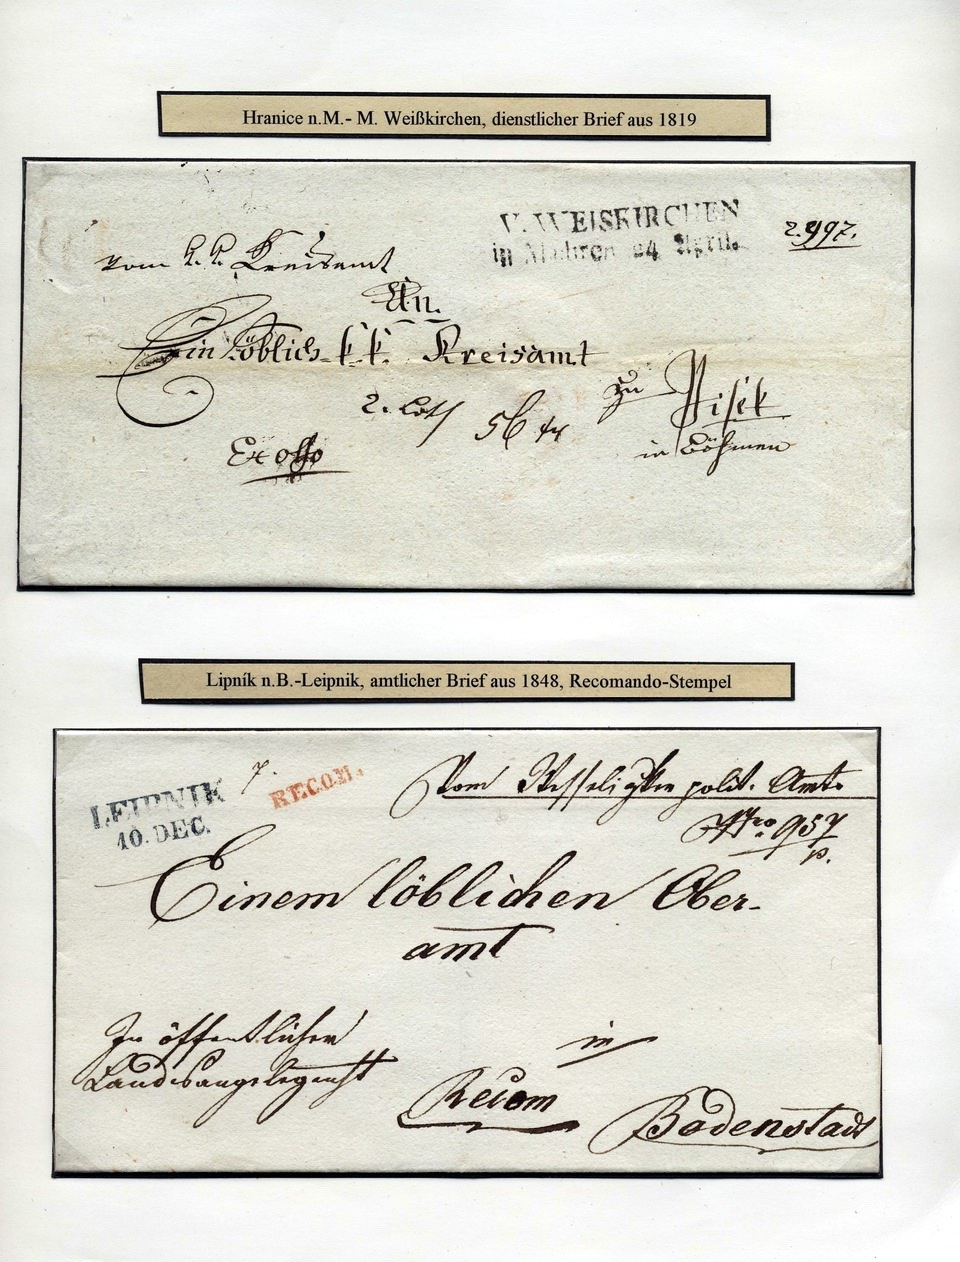 Hranice n.M.- M. Weißkirchen, dienstlicher Brief aus 1819
V. WEISKIRCHEN
in Mähren 24 April.
vom k. k. Kreisamt
An.
Ein Löblich k. k. Kreisamt
2. Loth
zu Pisek
in Böhmen
Ex offo
Lipník n.B.-Leipnik, amtlicher Brief aus 1848, Recomando-Stempel
LEIPNIK
10. DEC.
7.
RECOM.
Vom polit. Amte
Nro 957
p.
Einem löblichen Ober-
amt
In öffentlicher
Landesangelegenht
in
Recom
Bodenstadt